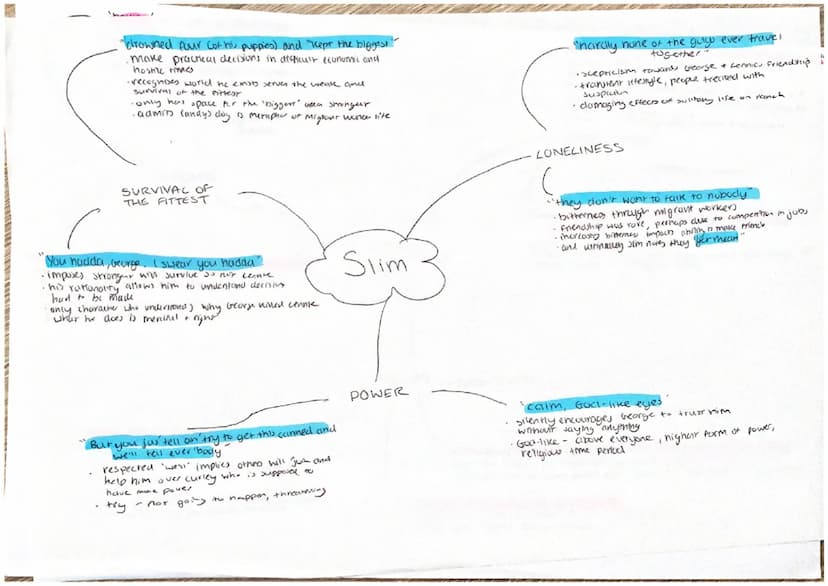 "drowned four (of his puppies) and "kept the biggest"
· make practical decisions in difficult economic and
hostile times
· recognises world he exists serves the weak and
survival of the fittest
· only has space for the 'biggest' and strongest
· admits (andy) dog is metaphor of migrant worker life
SURVIVAL OF
THE FITTEST
"You hadda, George. I swear you hadda"
· implies stronger will survive so not Lennie
· his rationality allows him to understand decision
had to be made
· only character who understands why George killed Lennie
what he does is merciful + right
Slim
"hardly none of the guys ever travel
together"
· scepticism towards George + Lennie friendship
· transient lifestyle, people treated with
suspicion
· damaging effects of solitary life on ranch
LONELINESS
"they don't want to talk to nobody"
· bitterness through migrant workers
· friendship was rare, perhaps due to competition in jobs
· increased bitterness impairs ability to make friends
· and ultimately Slim notes they "get mean"
POWER
"But you jus' tell an' try to get this canned and
we'll tell ever'body"
· respected 'we'll' implies others will join and
help him over curley who is supposed to
have more power
· try - not going to happen, threatening
"calm, God-like eyes"
· silently encourages George to trust him
without saying anything
· God-like - above everyone, highest form of power,
religious time period